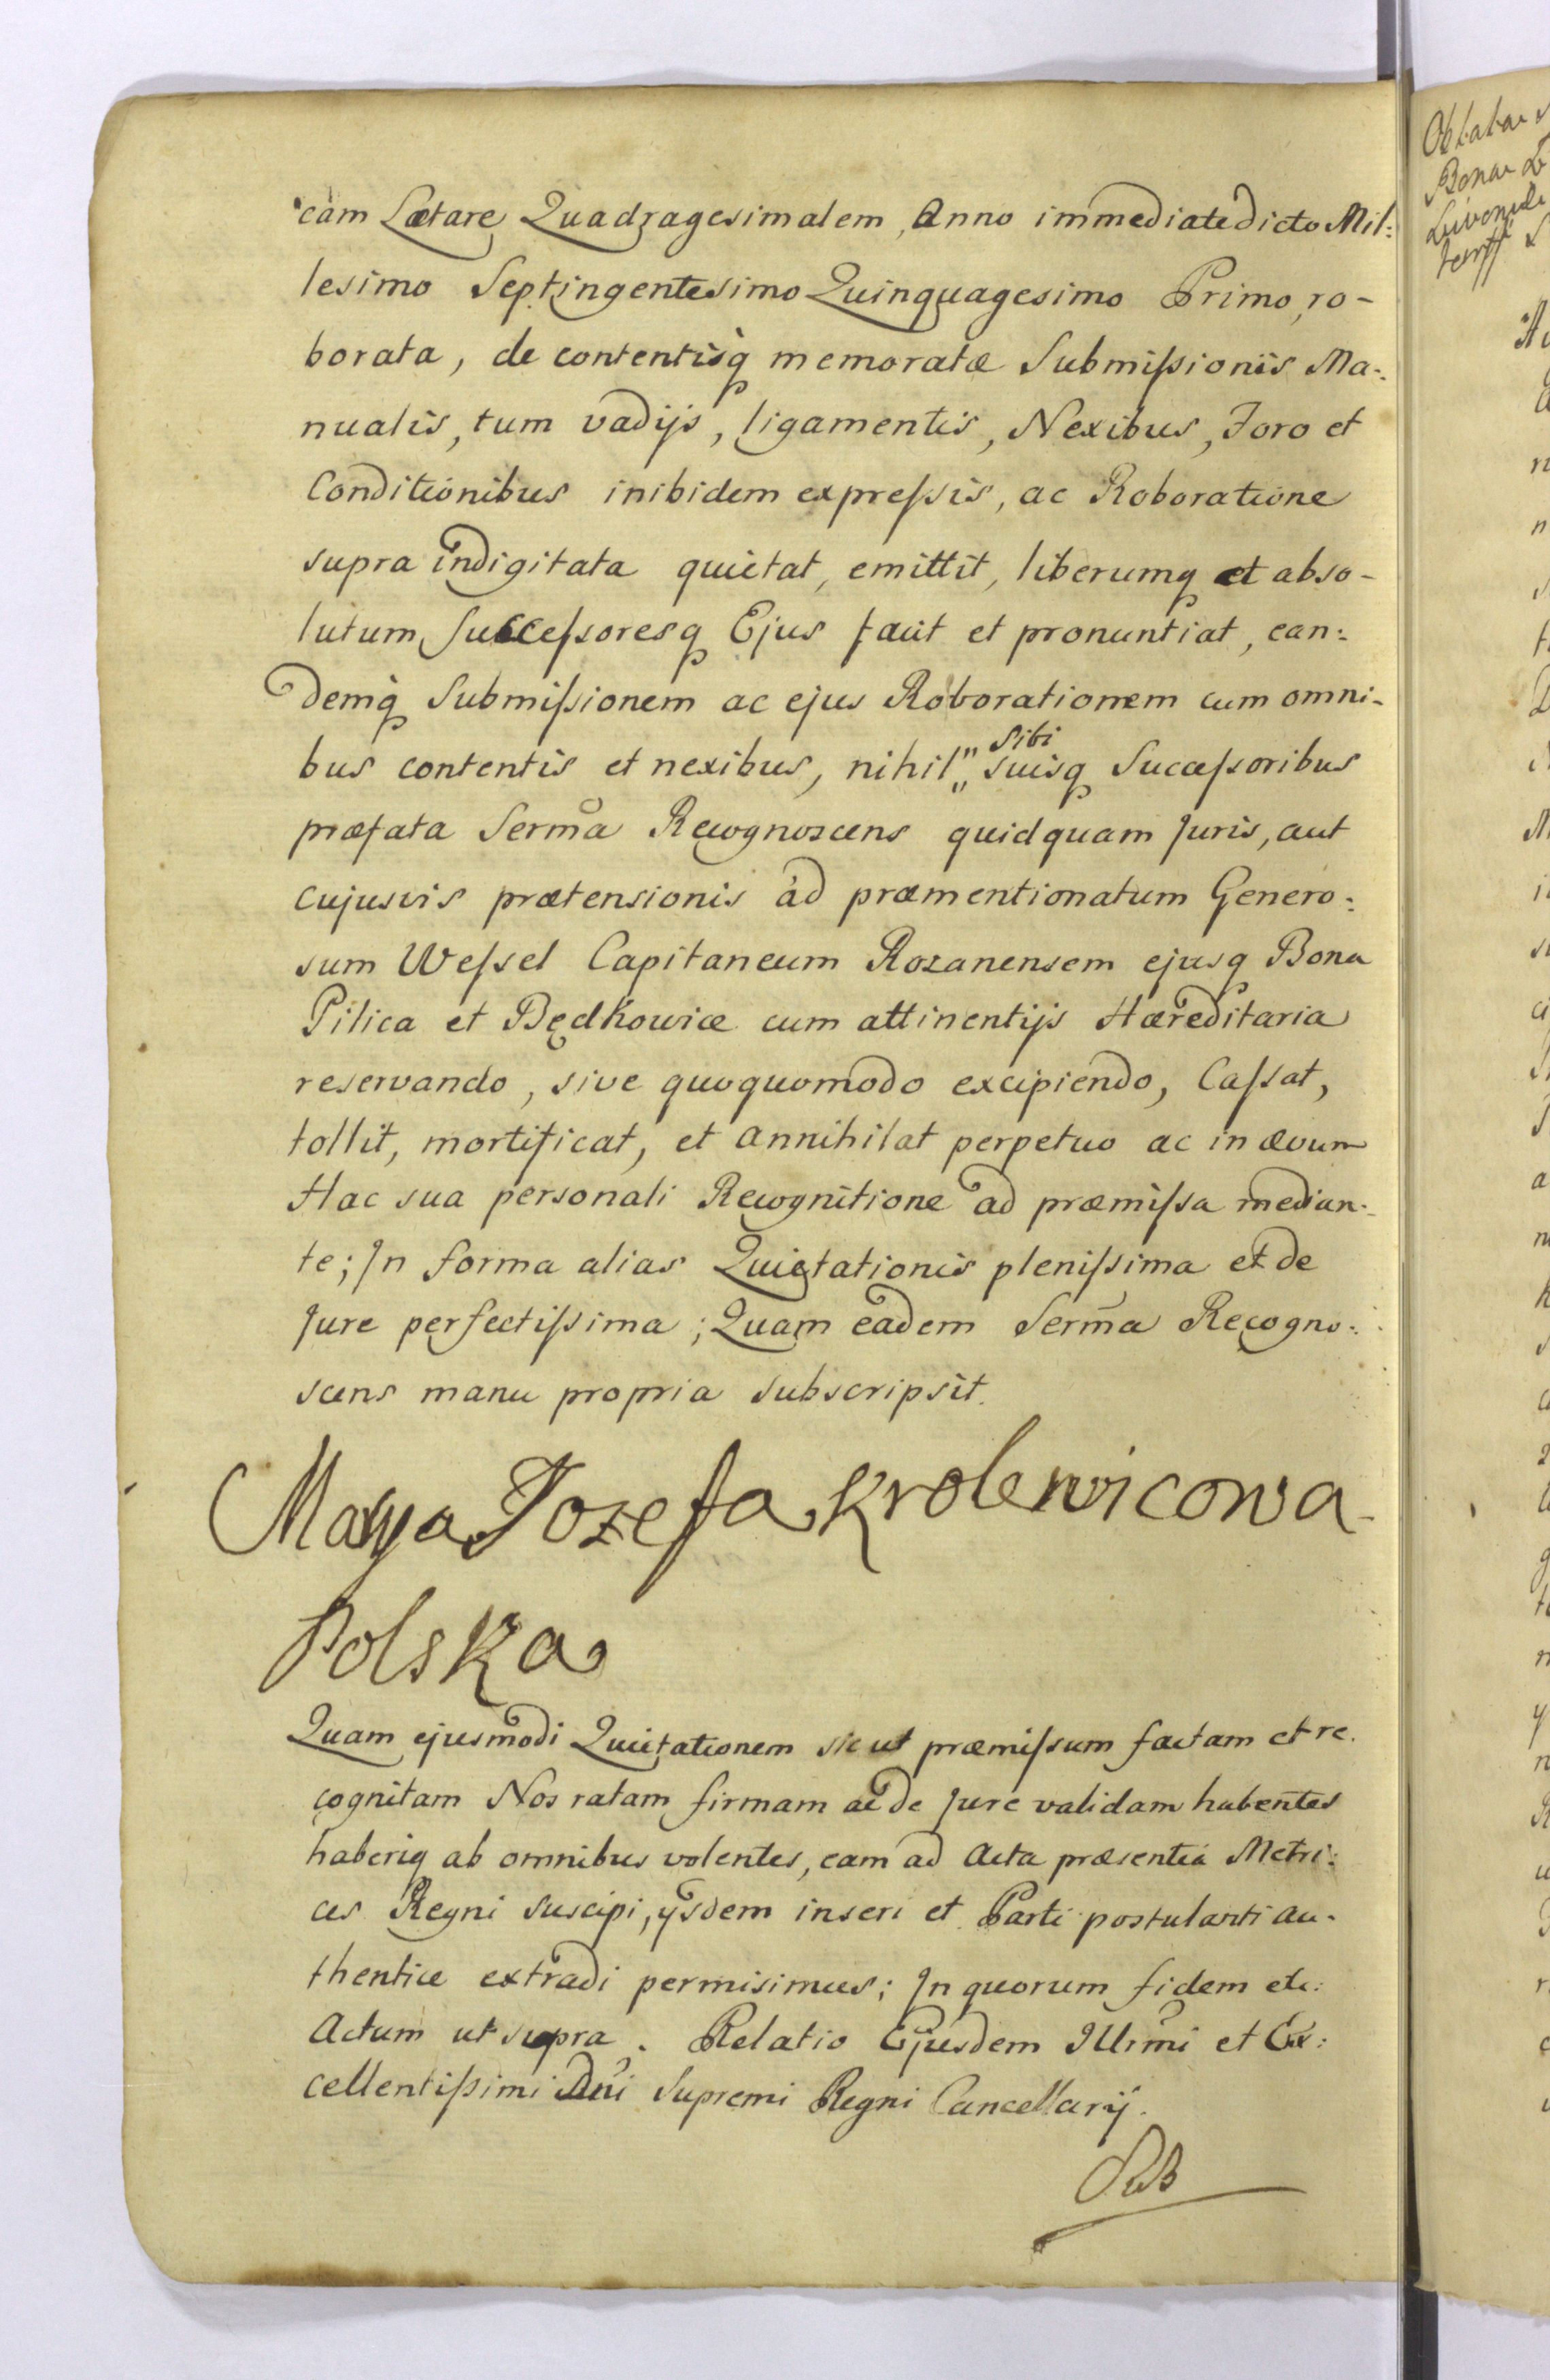 cam Lætare Quadragesimalem, Anno immediate dicto Mil:
lesimo Septingentesimo Quinquagesimo Primo, ro-
borata, de contentisq memoratæ Submiſsionis Ma:
nualis, tum vadijs, ligamentis, Nexibus, Foro et
Conditionibus inibidem expreſsis, ac Roboratione
supra indigitata quietat, emittit, liberumq et abso-
lutum, Succeſsoresq Ejus facit et pronuntiat, ean:
demq Submiſsionem ac ejus Roborationem cum omni-
bus contentis et nexibus, nihil „ Sibi suisq Succeſsoribus
præfata Serma Recognoscens quidquam Juris, aut
cujusvis prætensionis ad præmentionatum Genero:
sum Weſsel Capitaneum Rozanensem ejusq Bona
Pilica et Będkowice cum attinentijs Hæreditaria
reservando, sive quoquomodo excipiendo, Caſsat,
tollit, mortificat, et annihilat perpetuo ac in ævum
Hac sua personali Recognitione ad præmiſsa median-
te; In forma alias Quietationis pleniſsima et de
Jure perfectiſsima; Quam eadem Serma Recogno:
scens manu propria subscripsit.
Marya Jozefa Krolewicowa
Polska
Quam ejusmodi Quietationem sicut præmiſsum factam et re.
cognitam Nos ratam firmam ac de Jure validam habentes
haberiq ab omnibus volentes, eam ad Acta præsentia Metri:
ces Regni suscipi, ijsdem inseri et Parti postulanti au-
thentice extradi permisimus; In quorum fidem etc:
Actum ut supra. Relatio Ejusdem Illrmi et Ex:
cellentiſsimi Dni Supremi Regni Cancellarij.